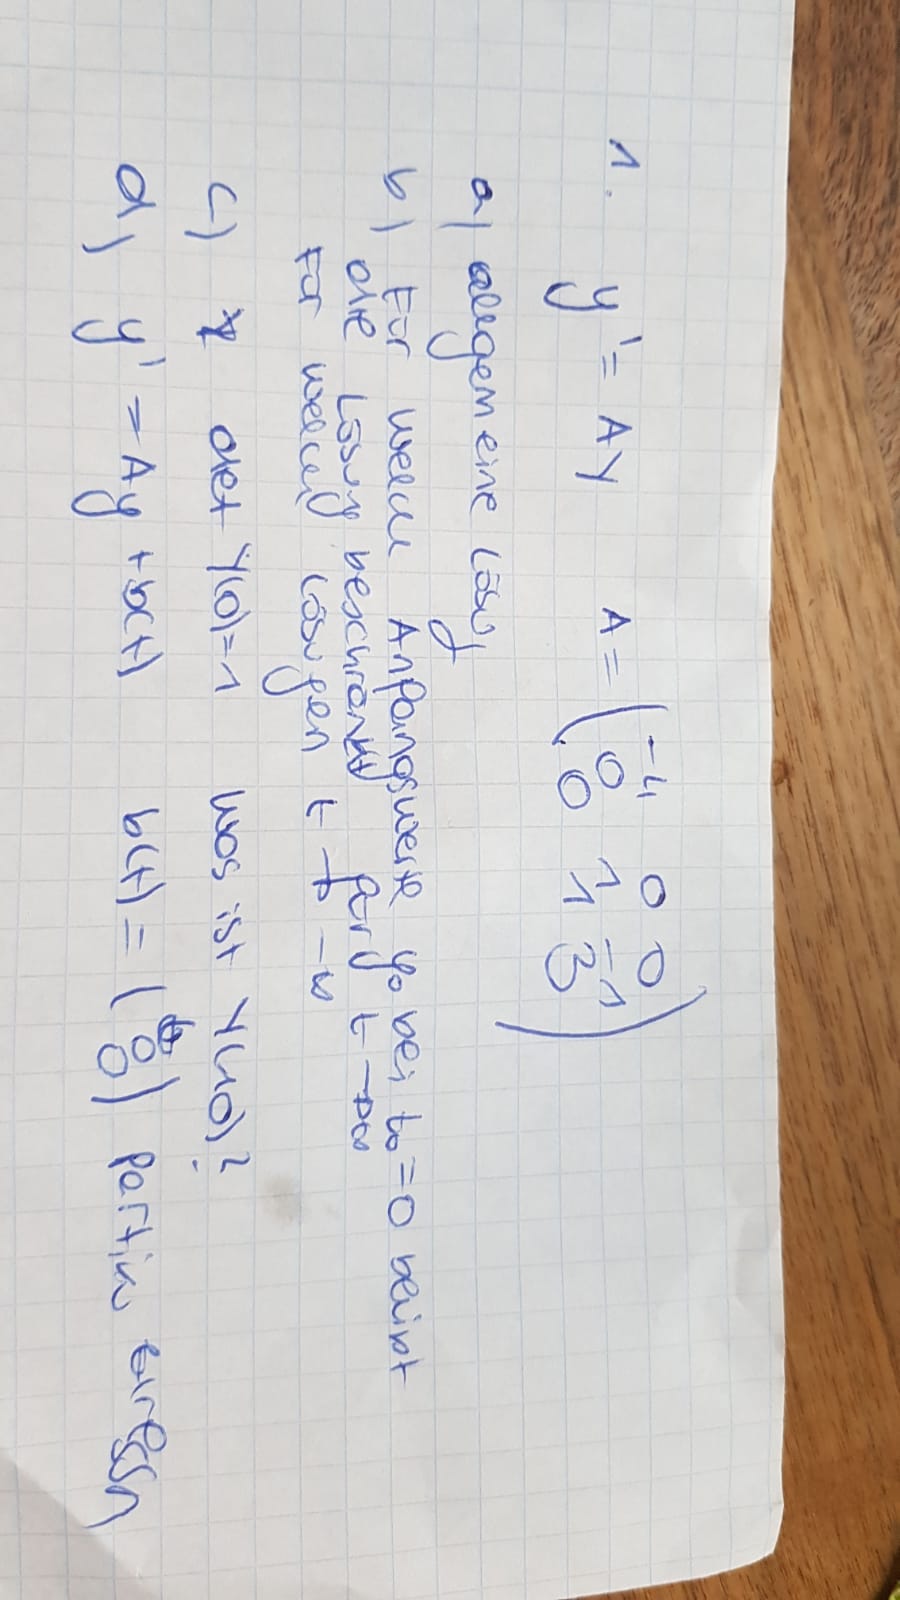 1. y' = Ay A = ( -4 0 0
0 1 -1
0 1 3 )
a) allgemeine Lösug
b) Für welche Anfangswerte y0 bei t0=0 bleibt
die Lösung beschränkt für t → ∞
Für welche Lösugen t → -∞
c) det Y(0)=1 Was ist Y(10)?
d) y' = Ay + b(t) b(t) = ( t 0 0 )